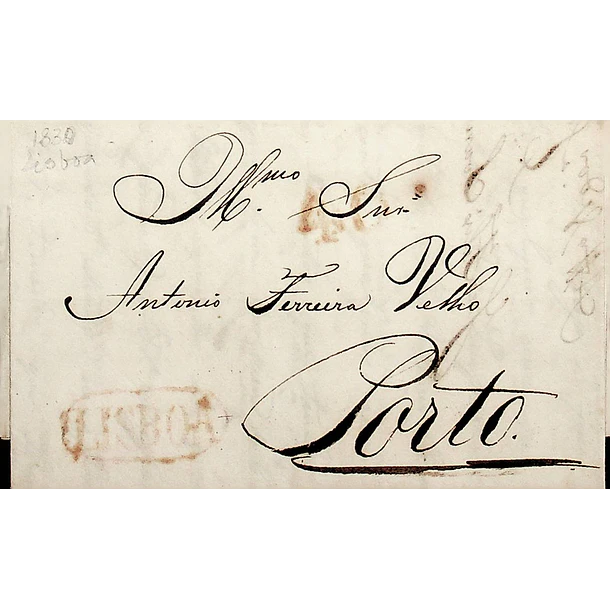 1830
Lisboa
Illmo. Snr.
Antonio Ferreira Velho
Porto.
LISBOA